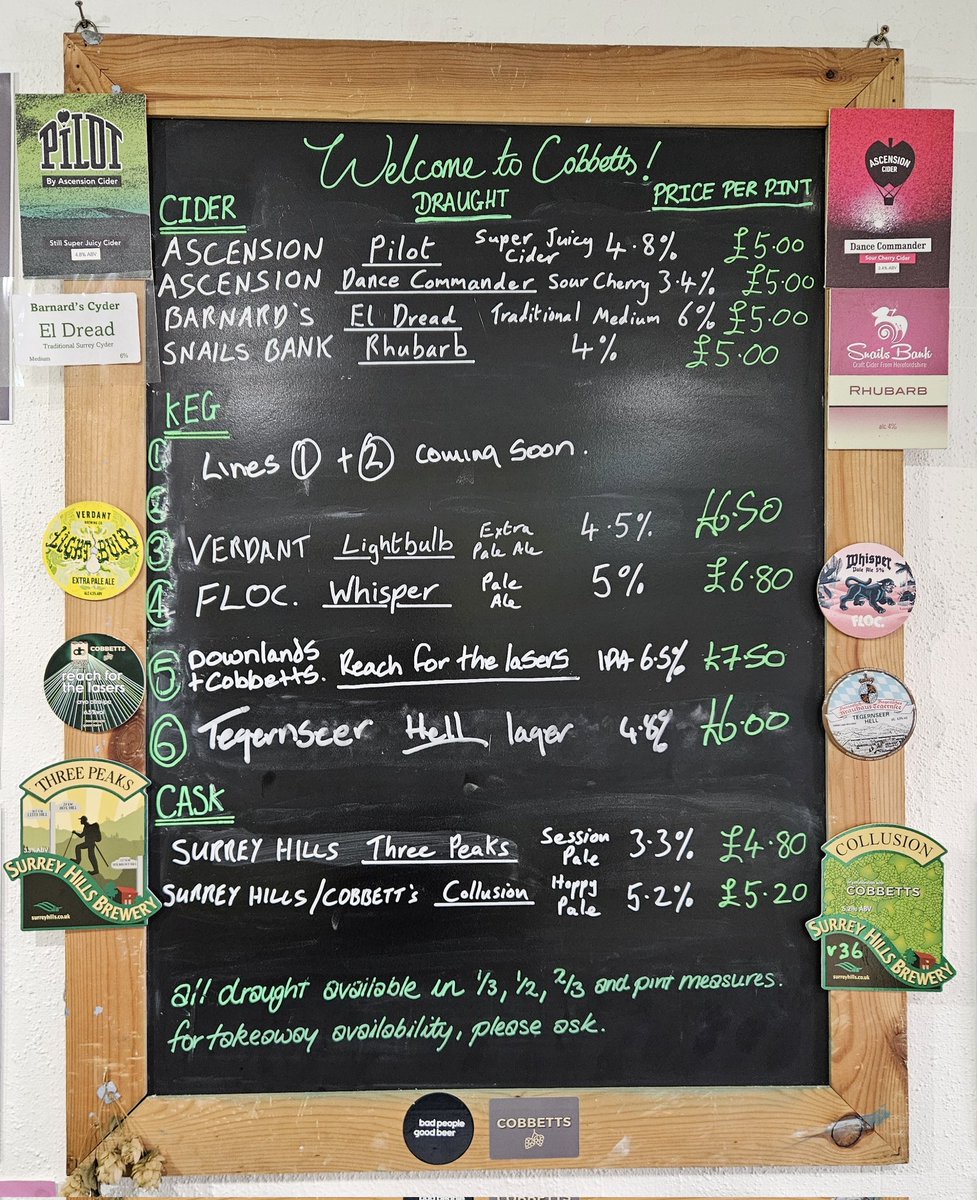 Welcome to Cobbetts!
DRAUGHT
PRICE PER PINT
CIDER
ASCENSION Pilot Super Juicy Cider 4.8% £5.00
ASCENSION Dance Commander Sour Cherry 3.4% £5.00
BARNARD'S El Dread Traditional Medium 6% £5.00
SNAILS BANK Rhubarb 4% £5.00
KEG
1
Lines 1 + 2 coming soon.
2
3 VERDANT Lightbulb Extra Pale Ale 4.5% £6.50
4 FLOC. Whisper Pale Ale 5% £6.80
5 Downlands + Cobbetts. Reach for the lasers IPA 6.5% £7.50
6 Tegernseer Hell lager 4.8% £6.00
CASK
SURREY HILLS Three Peaks Session Pale 3.3% £4.80
SURREY HILLS/COBBETT'S Collusion Hoppy Pale 5.2% £5.20
all draught available in 1/3, 1/2, 2/3 and pint measures.
for takeaway availability, please ask.
PILOT
By Ascension Cider
Still Super Juicy Cider
4.8% ABV
Barnard's Cyder
El Dread
Traditional Surrey Cyder
Medium 6%
VERDANT
BREWING CO
LIGHT BULB
EXTRA PALE ALE
COBBETTS
reach for
the lasers
THREE PEAKS
SURREY HILLS BREWERY
surreyhills.co.uk
ASCENSION
CIDER
Dance Commander
Sour Cherry Cider
3.4% ABV
Snails Bank
Craft Cider From Herefordshire
RHUBARB
alc 4%
Whisper
Pale Ale 5%
FLOC.
TEGERNSEER
HELL
COLLUSION
COBBETTS
5.2% ABV
SURREY HILLS BREWERY
v36
surreyhills.co.uk
bad people
good beer
COBBETTS